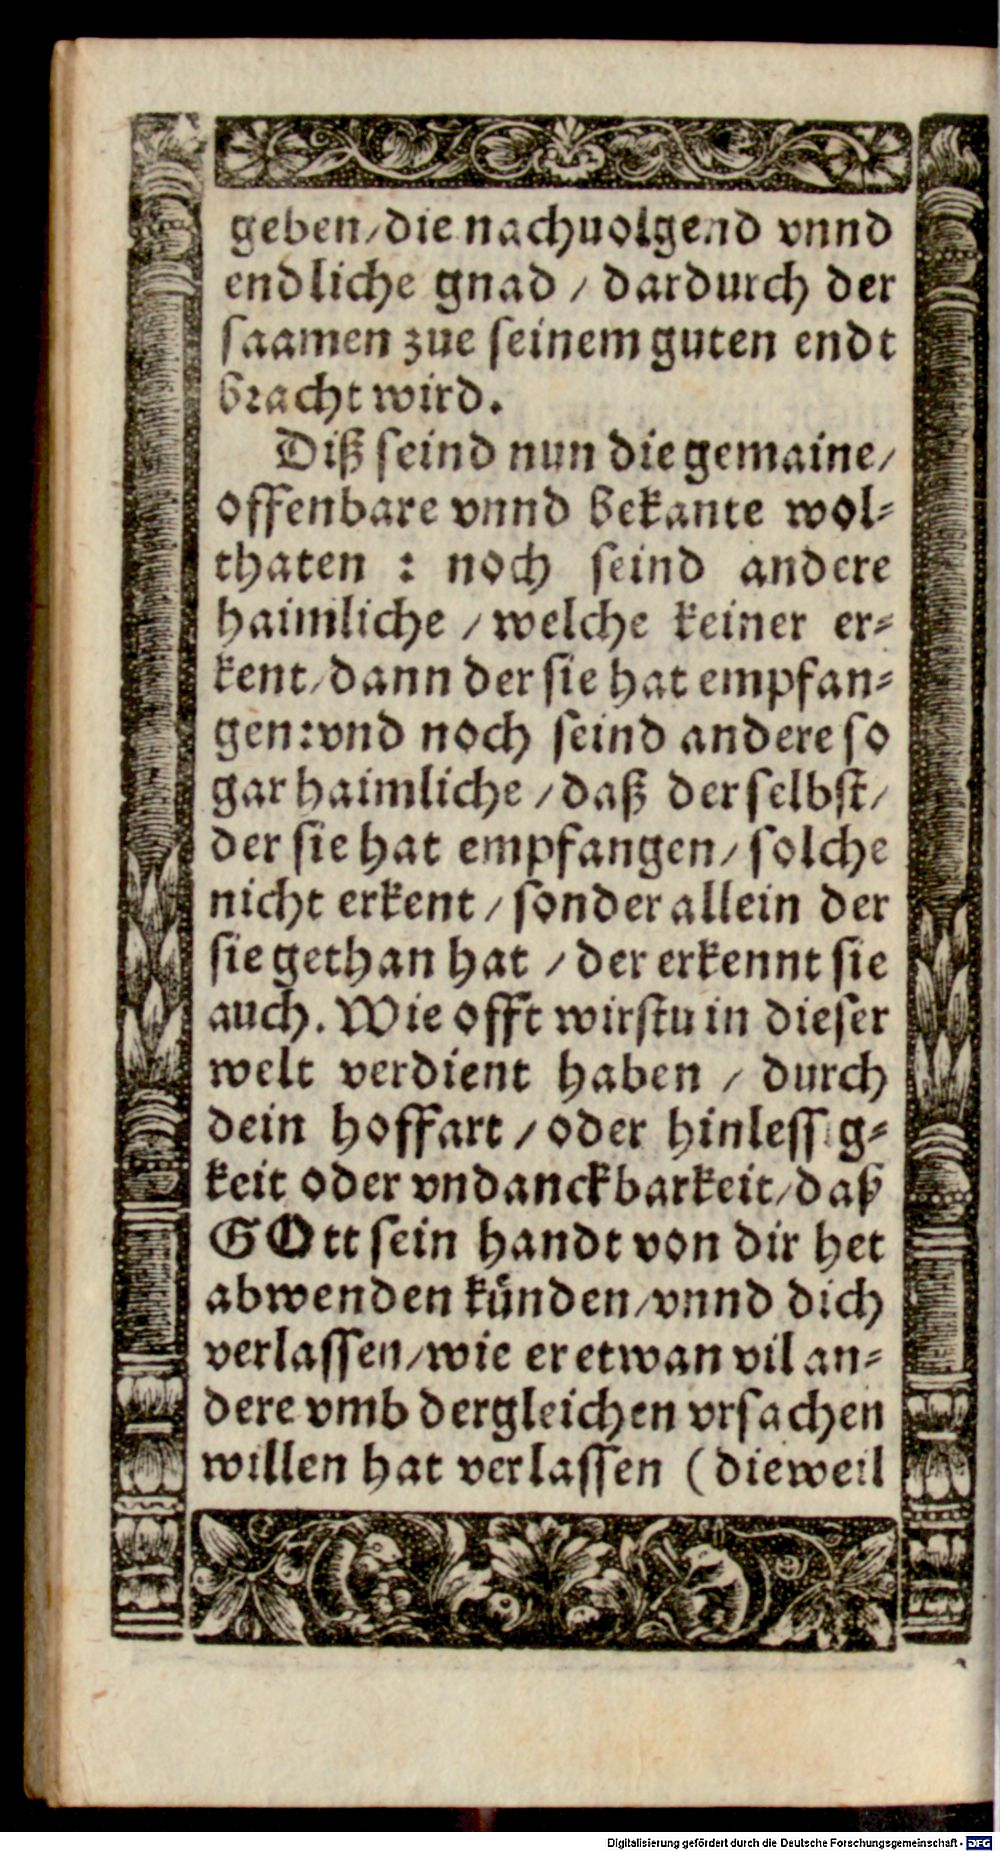 geben/die nachuolgend vnnd
endliche gnad / dardurch der
saamen zue seinem guten endt
bracht wird.
Diß seind nun die gemaine/
offenbare vnnd bekante wol-
thaten : noch seind andere
haimliche / welche keiner er-
kent/dann der sie hat empfan-
gen:vnd noch seind andere so
gar haimliche / daß der selbst/
der sie hat empfangen/ solche
nicht erkent / sonder allein der
sie gethan hat / der erkennt sie
auch. Wie offt wirstu in dieser
welt verdient haben / durch
dein hoffart / oder hinlessig-
keit oder vndanckbarkeit/daß
GOtt sein handt von dir het
abwenden künden/vnnd dich
verlassen/wie er etwan vil an-
dere vmb dergleichen vrsachen
willen hat verlassen (dieweil
Digitalisierung gefördert durch die Deutsche Forschungsgemeinschaft - DFG